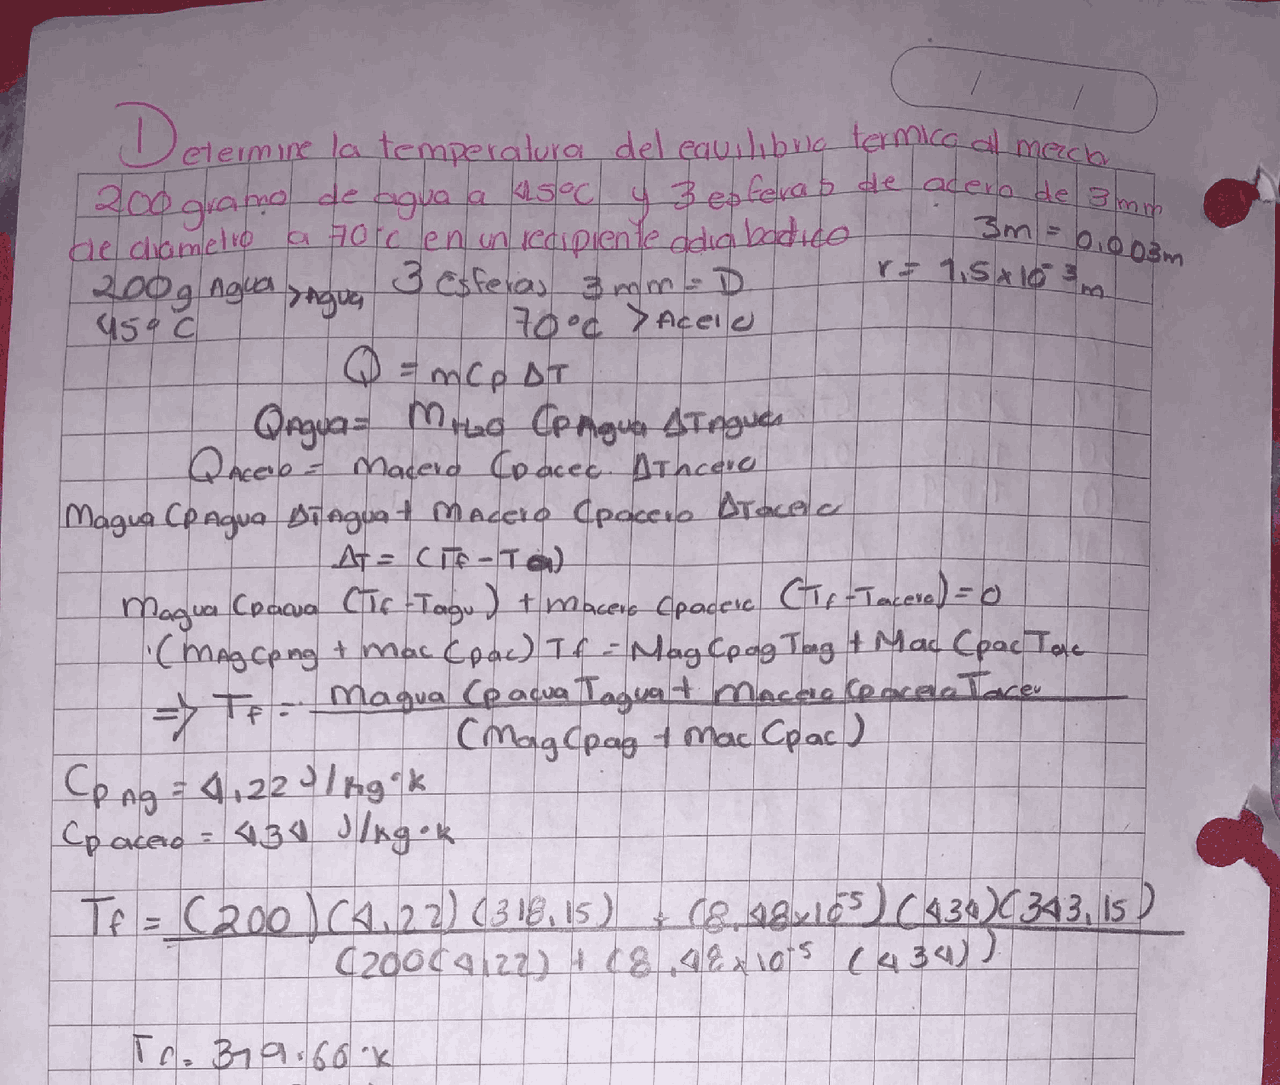 Determine la temperatura del equilibrio termico al mezcla
200 gramo de agua a 45°C y 3 esferas de acero de 3mm
de diametro a 70°C en un recipiente adiabadico
3m = 0.003m
200g Agua >Agua 3 Esferas 3mm = D
r = 1,5x10⁻³m
45°C 70°C >Acero
Q = mCp ΔT
QAgua = MH₂O CpAgua ΔTAgua
QAcero = Macero Cpacec ΔTAcero
Magua CpAgua ΔTAgua + Macero Cpacero ΔTacero
ΔT = (Tf - T )
Magua Cpagua (Tf - Tagu) + macero Cpacero (Tf - Tacero) = 0
(MAgCpAg + mac Cpac) Tf = MagCpagTag + Mac CpacTac
=> Tf = Magua CpaguaTagua + Macero CpaceroTacer
(MagCpag + mac Cpac)
CpAg = 4,22 J/kg·k
Cpacero = 434 J/kg·k
Tf = (200)(4,22)(318,15) + (8,48x10⁻⁵)(434)(343,15)
(200(4,22) + (8,48x10⁻⁵ (434))
Tf = 319.66 ·k